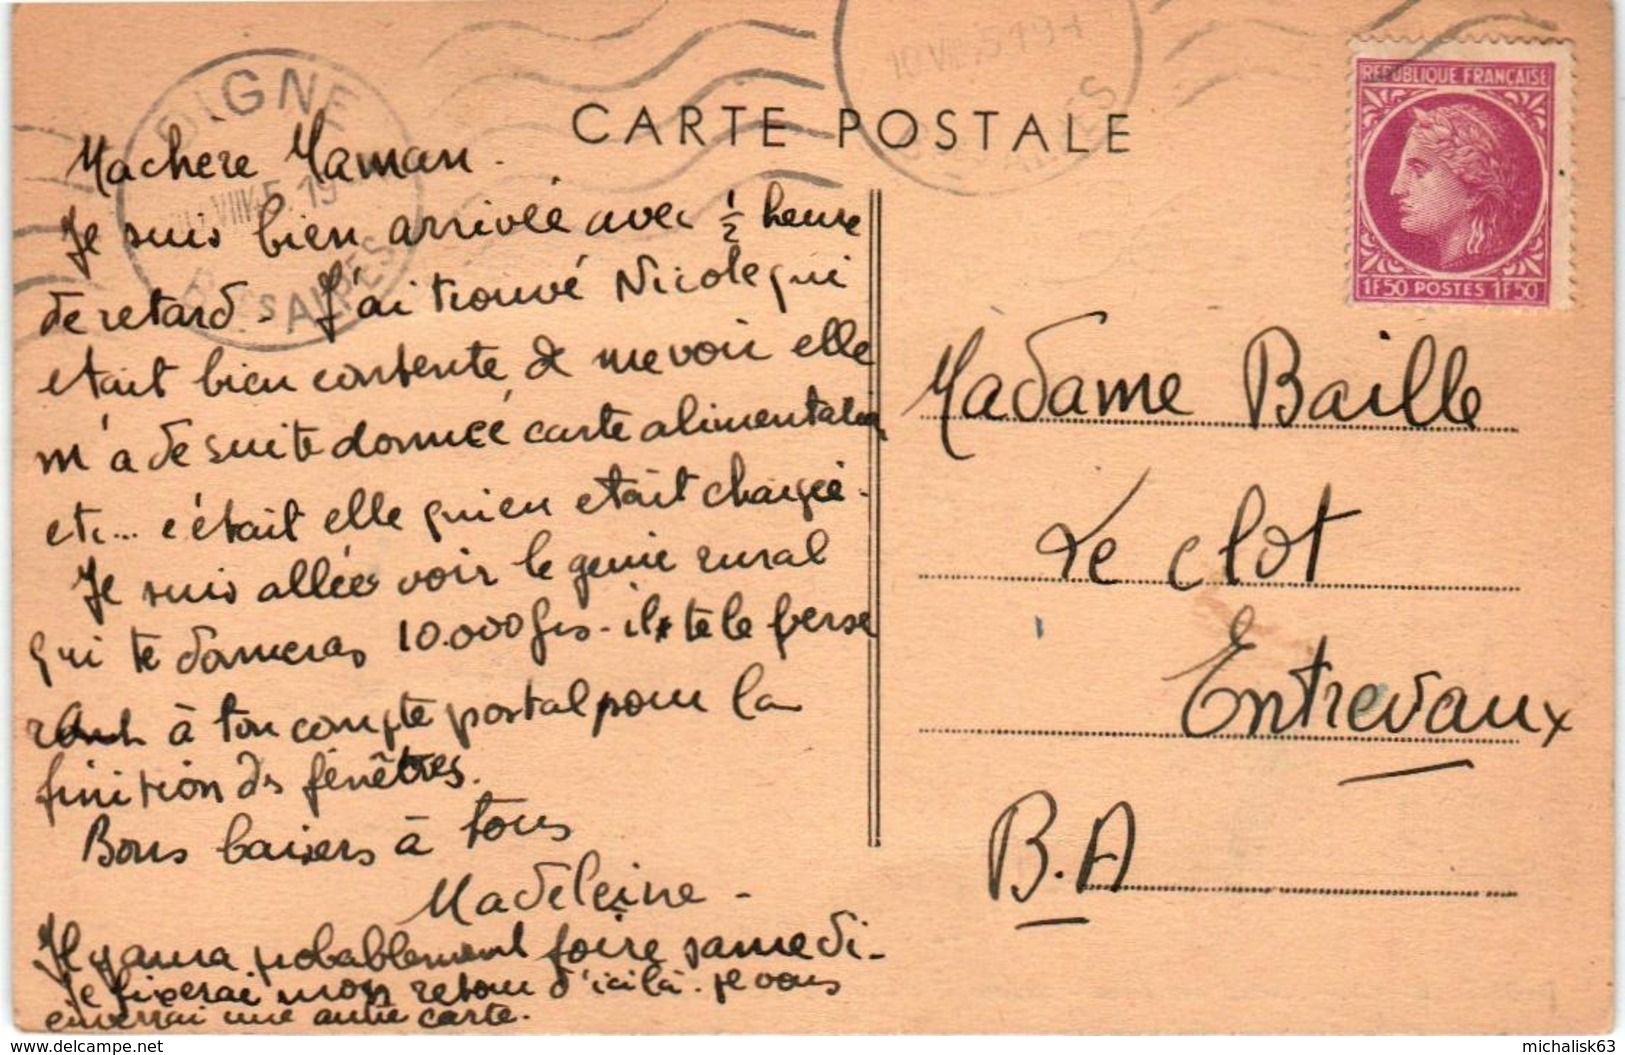 CARTE POSTALE
DIGNE
VIII.5 19
BSES ALPES
10 VIII 5 194
REPUBLIQUE FRANÇAISE
1F50 POSTES 1F50
Machere Maman.
Je suis bien arrivée avec ½ heure
de retard - J'ai trouvé Nicole qui
etait bien contente de me voir elle
m'a de suite donnée carte alimentation
etc... c'était elle qui en etait chargée.
Je suis allée voir le genie rural
qui te donneras 10.000 frs - il te le verse
à ton compte postal pour la
finition ds fénêtres.
Bons baisers à tous
Madeleine -
Il y aura probablement foire samedi -
je fixerai mon retour d'icilà. je vous
enverrai une autre carte.
Madame Baille
Le clot
Entrevaux
B.A
www.delcampe.net
michalisk63